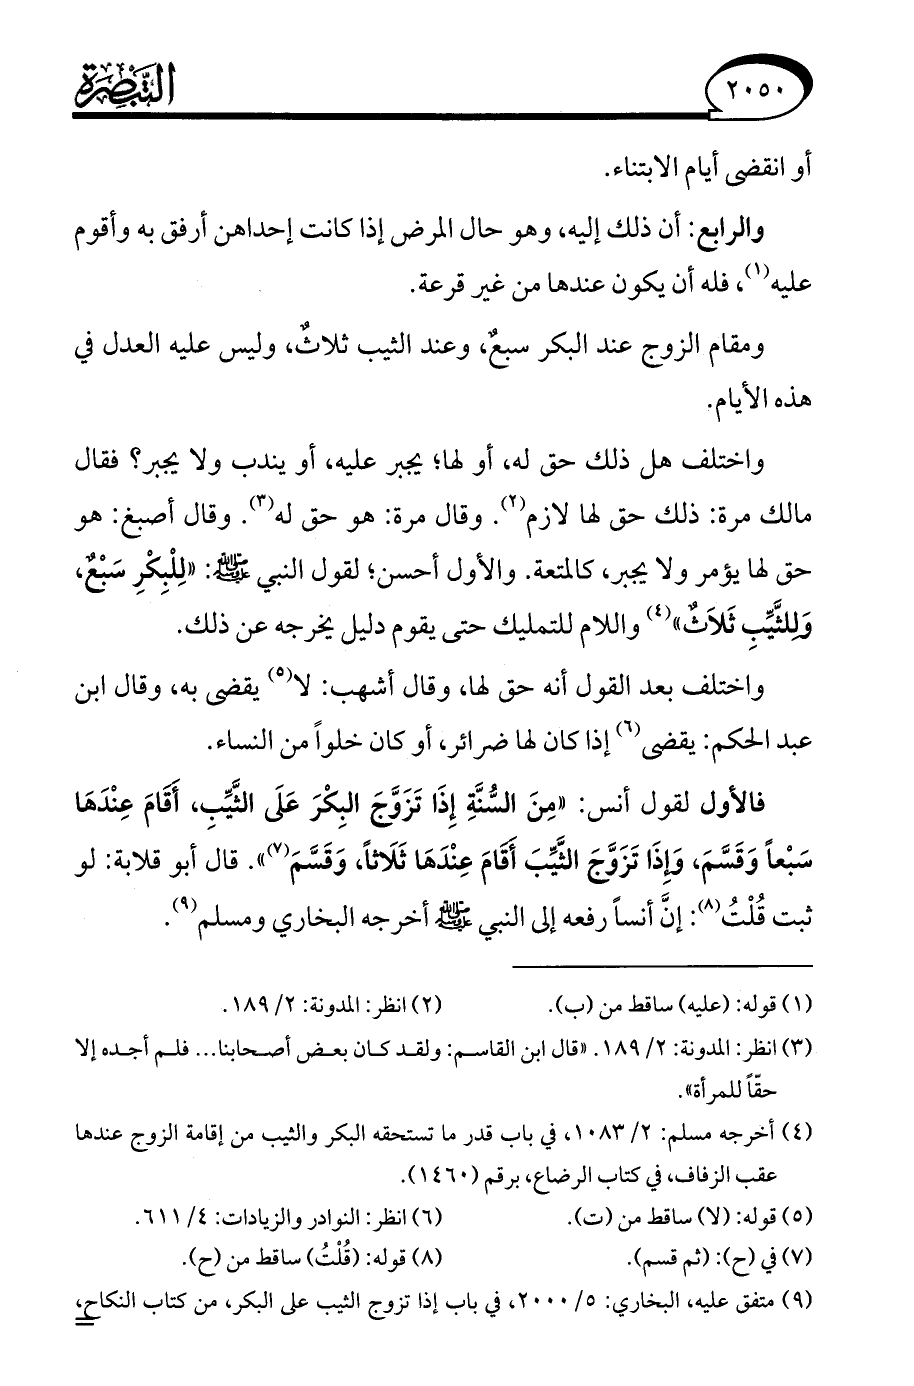 التبصرة
٢٠٥٠
أو انقضى أيام الابتناء.
والرابع: أن ذلك إليه، وهو حال المرض إذا كانت إحداهن أرفق به وأقوم
عليه(١)، فله أن يكون عندها من غير قرعة.
ومقام الزوج عند البكر سبعٌ، وعند الثيب ثلاثٌ، وليس عليه العدل في
هذه الأيام.
واختلف هل ذلك حق له، أو لها؛ يجبر عليه، أو يندب ولا يجبر؟ فقال
مالك مرة: ذلك حق لها لازم(٢). وقال مرة: هو حق له(٣). وقال أصبغ: هو
حق لها يؤمر ولا يجبر، كالمتعة. والأول أحسن؛ لقول النبي ﷺ: «لِلْبِكْرِ سَبْعٌ،
وَلِلثَّيِّبِ ثَلاَثٌ»(٤) واللام للتمليك حتى يقوم دليل يخرجه عن ذلك.
واختلف بعد القول أنه حق لها، وقال أشهب: لا(٥) يقضى به، وقال ابن
عبد الحكم: يقضى(٦) إذا كان لها ضرائر، أو كان خلواً من النساء.
فالأول لقول أنس: «مِنَ السُّنَّةِ إِذَا تَزَوَّجَ البِكْرَ عَلَى الثَّيِّبِ، أَقَامَ عِنْدَهَا
سَبْعاً وَقَسَّمَ، وَإِذَا تَزَوَّجَ الثَّيِّبَ أَقَامَ عِنْدَهَا ثَلَاثاً، وَقَسَّمَ(٧)». قال أبو قلابة: لو
ثبت قُلْتُ(٨): إنَّ أنساً رفعه إلى النبي ﷺ أخرجه البخاري ومسلم(٩).
(١) قوله: (عليه) ساقط من (ب).
(٢) انظر: المدونة: ٢/ ١٨٩.
(٣) انظر: المدونة: ٢/ ١٨٩. «قال ابن القاسم: ولقد كان بعض أصحابنا... فلم أجده إلا
حقّاً للمرأة».
(٤) أخرجه مسلم: ٢/ ١٠٨٣، في باب قدر ما تستحقه البكر والثيب من إقامة الزوج عندها
عقب الزفاف، في كتاب الرضاع، برقم (١٤٦٠).
(٥) قوله: (لا) ساقط من (ت).
(٦) انظر: النوادر والزيادات: ٤/ ٦١١.
(٧) في (ح): (ثم قسم).
(٨) قوله: (قُلْتُ) ساقط من (ح).
(٩) متفق عليه، البخاري: ٥/ ٢٠٠٠، في باب إذا تزوج الثيب على البكر، من كتاب النكاح،